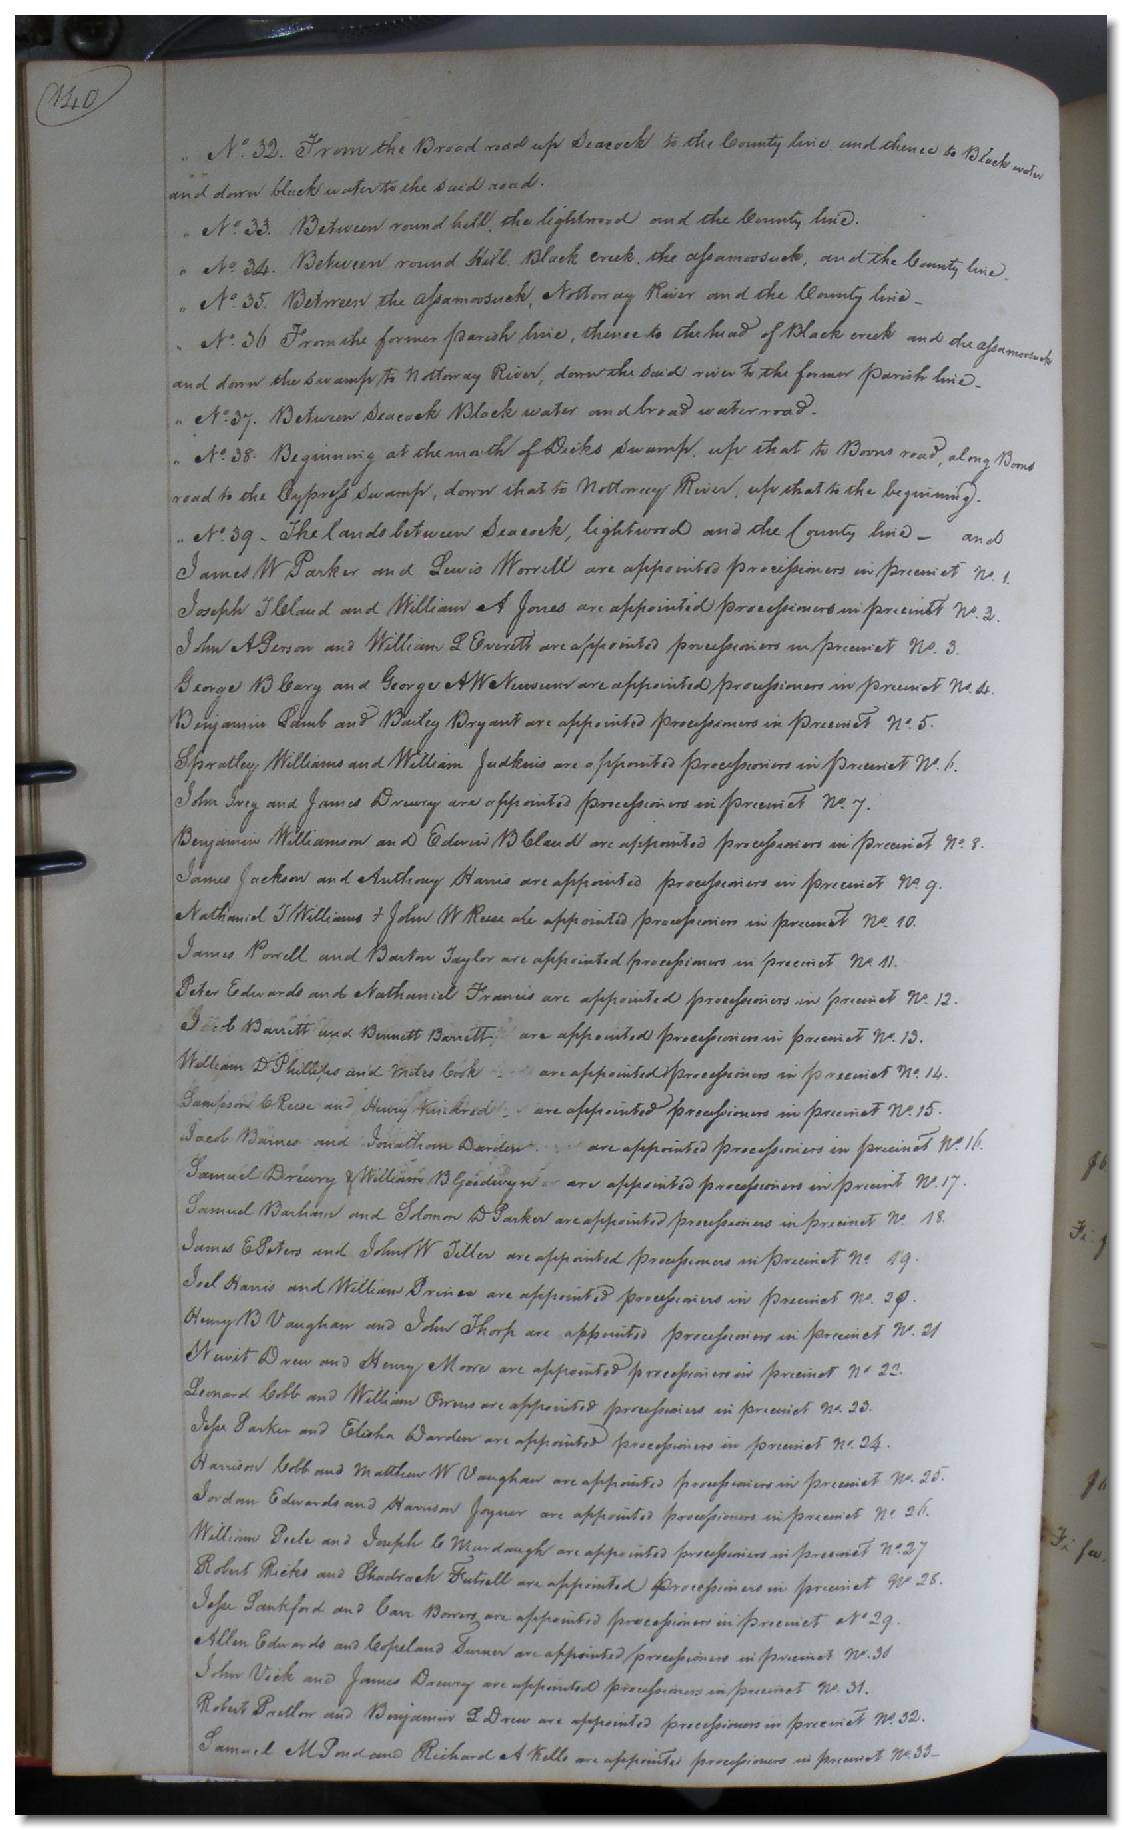 140
" No. 32. From the Broad road up Seacock to the County line and thence to Black water
and down black water to the said road.
" No. 33. Between round hill, the lightwood and the County line.
" No. 34. Between round Hill Black creek, the assamoosuck, and the County line.
" No. 35. Between the assamoosuck, Nottoway River and the County line -
" No. 36 From the former parish line, thence to the head of Black creek and the assamoosuck
and down the swamp to Nottoway River, down the said river to the former parish line -
" No. 37. Between Seacock Black water and broad water road.
" No. 38. Beginning at the mouth of Dicks swamp, up that to Boons road, along Boons
road to the Cypress swamp, down that to Nottoway River, up that to the beginning.
" No. 39 - The lands between Seacock, lightwood and the County line - and
James W Parker and Lewis Worrell are appointed processioners in precinct No. 1.
Joseph T Claud and William A Jones are appointed processioners in precinct No. 2.
John A Person and William L Everett are appointed processioners in precinct No. 3.
George B Cary and George A W Newsum are appointed processioners in precinct No. 4.
Benjamin Lamb and Bailey Bryant are appointed processioners in precinct No. 5.
Spratley Williams and William Judkins are appointed processioners in precinct No. 6.
John Ivey and James Drewry are appointed processioners in precinct No. 7.
Benjamin Williamson and Edwin B Claud are appointed processioners in precinct No. 8.
James Jackson and Anthony Harris are appointed processioners in precinct No. 9.
Nathaniel T Williams & John W Reese are appointed processioners in precinct No. 10.
James Porrell and Barton Taylor are appointed processioners in precinct No. 11.
Peter Edwards and Nathaniel Francis are appointed processioners in precinct No. 12.
Jacob Barrett and Bennett Barrett are appointed processioners in precinct No. 13.
William D Phillips and Miles Cook are appointed processioners in precinct No. 14.
Sampson C Reese and Henry Kindred are appointed processioners in precinct No. 15.
Jacob Barnes and Jonathan Darden are appointed processioners in precinct No. 16.
Samuel Drewry & William B Goodwyn are appointed processioners in precinct No. 17.
Samuel Barham and Solomon D Parker are appointed processioners in precinct No. 18.
James E Peters and John W Tiller are appointed processioners in precinct No 19.
Joel Harris and William Prince are appointed processioners in precinct No. 20.
Henry B Vaughan and John Thorp are appointed processioners in precinct No. 21
Newit Drew and Henry Moore are appointed processioners in precinct No 22.
Leonard Cobb and William Owens are appointed processioners in precinct No. 23.
Jesse Parker and Elisha Darden are appointed processioners in precinct No. 24.
Harrison Cobb and Matthew W Vaughan are appointed processioners in precinct No. 25.
Jordan Edwards and Harrison Joyner are appointed processioners in precinct No 26.
William Peele and Joseph C Murdaugh are appointed processioners in precinct No. 27
Robert Ricks and Shadrack Futrell are appointed processioners in precinct No 28.
Jesse Lankford and Carr Bowers are appointed processioners in precinct No 29.
Allen Edwards and Copeland Turner are appointed processioners in precinct No. 30
John Vick and James Drewry are appointed processioners in precinct No. 31.
Robert Pretlow and Benjamin L Drew are appointed processioners in precinct No. 32.
Samuel M Pond and Richard A Kello are appointed processioners in precinct No. 33 -